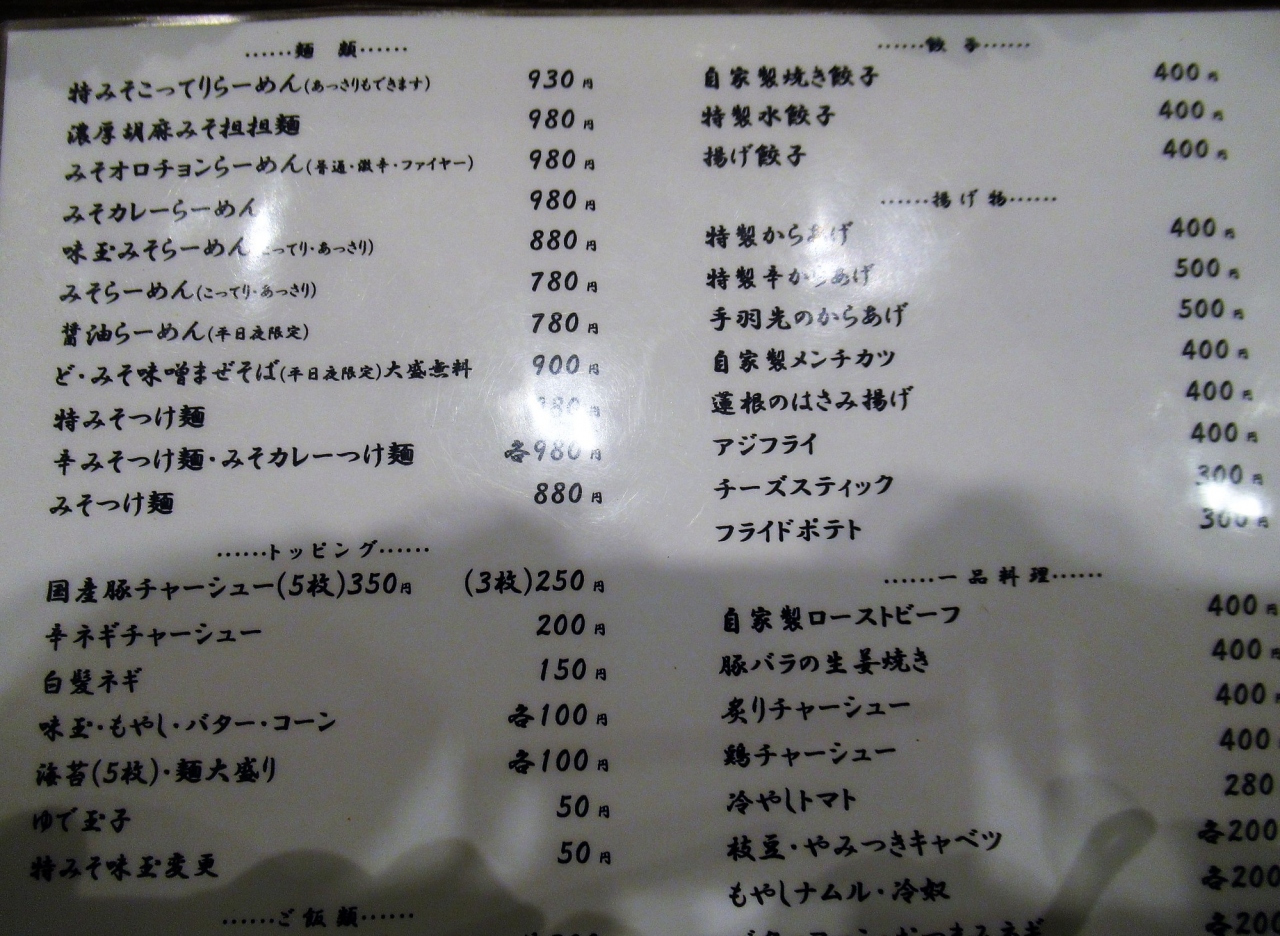 ……麺 類……
特みそこってりらーめん(あっさりもできます) 930円
濃厚胡麻みそ担担麺 980円
みそオロチョンらーめん(普通・激辛・ファイヤー) 980円
みそカレーらーめん 980円
味玉みそらーめん(こってり・あっさり) 880円
みそらーめん(こってり・あっさり) 780円
醤油らーめん(平日夜限定) 780円
ど・みそ味噌まぜそば(平日夜限定)大盛無料 900円
特みそつけ麺 円
辛みそつけ麺・みそカレーつけ麺 各980円
みそつけ麺 880円
……トッピング……
国産豚チャーシュー(5枚)350円 (3枚)250円
辛ネギチャーシュー 200円
白髪ネギ 150円
味玉・もやし・バター・コーン 各100円
海苔(5枚)・麺大盛り 各100円
ゆで玉子 50円
特みそ味玉変更 50円
……ご飯類……
……餃 子……
自家製焼き餃子 400円
特製水餃子 400円
揚げ餃子 400円
……揚げ物……
特製からあげ 400円
特製辛からあげ 500円
手羽先のからあげ 500円
自家製メンチカツ 400円
蓮根のはさみ揚げ 400円
アジフライ 400円
チーズスティック 300円
フライドポテト 300円
……一品料理……
自家製ローストビーフ 400円
豚バラの生姜焼き 400円
炙りチャーシュー 400
鶏チャーシュー 400
冷やしトマト 280
枝豆・やみつきキャベツ 各200
もやしナムル・冷奴 各200
各200